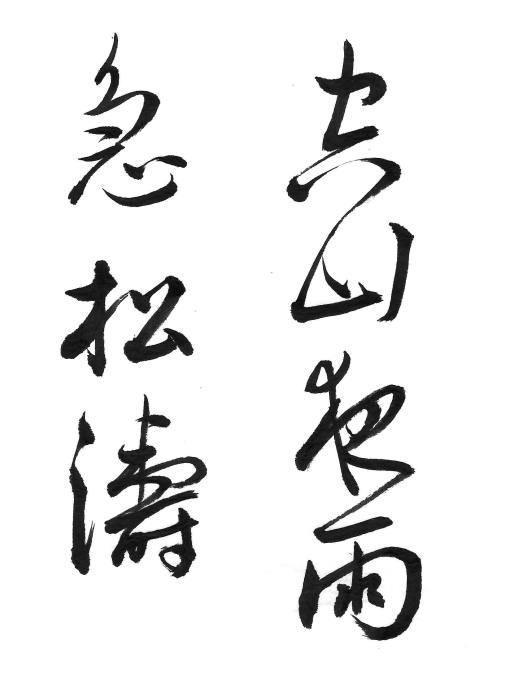 空山夜雨
急松濤